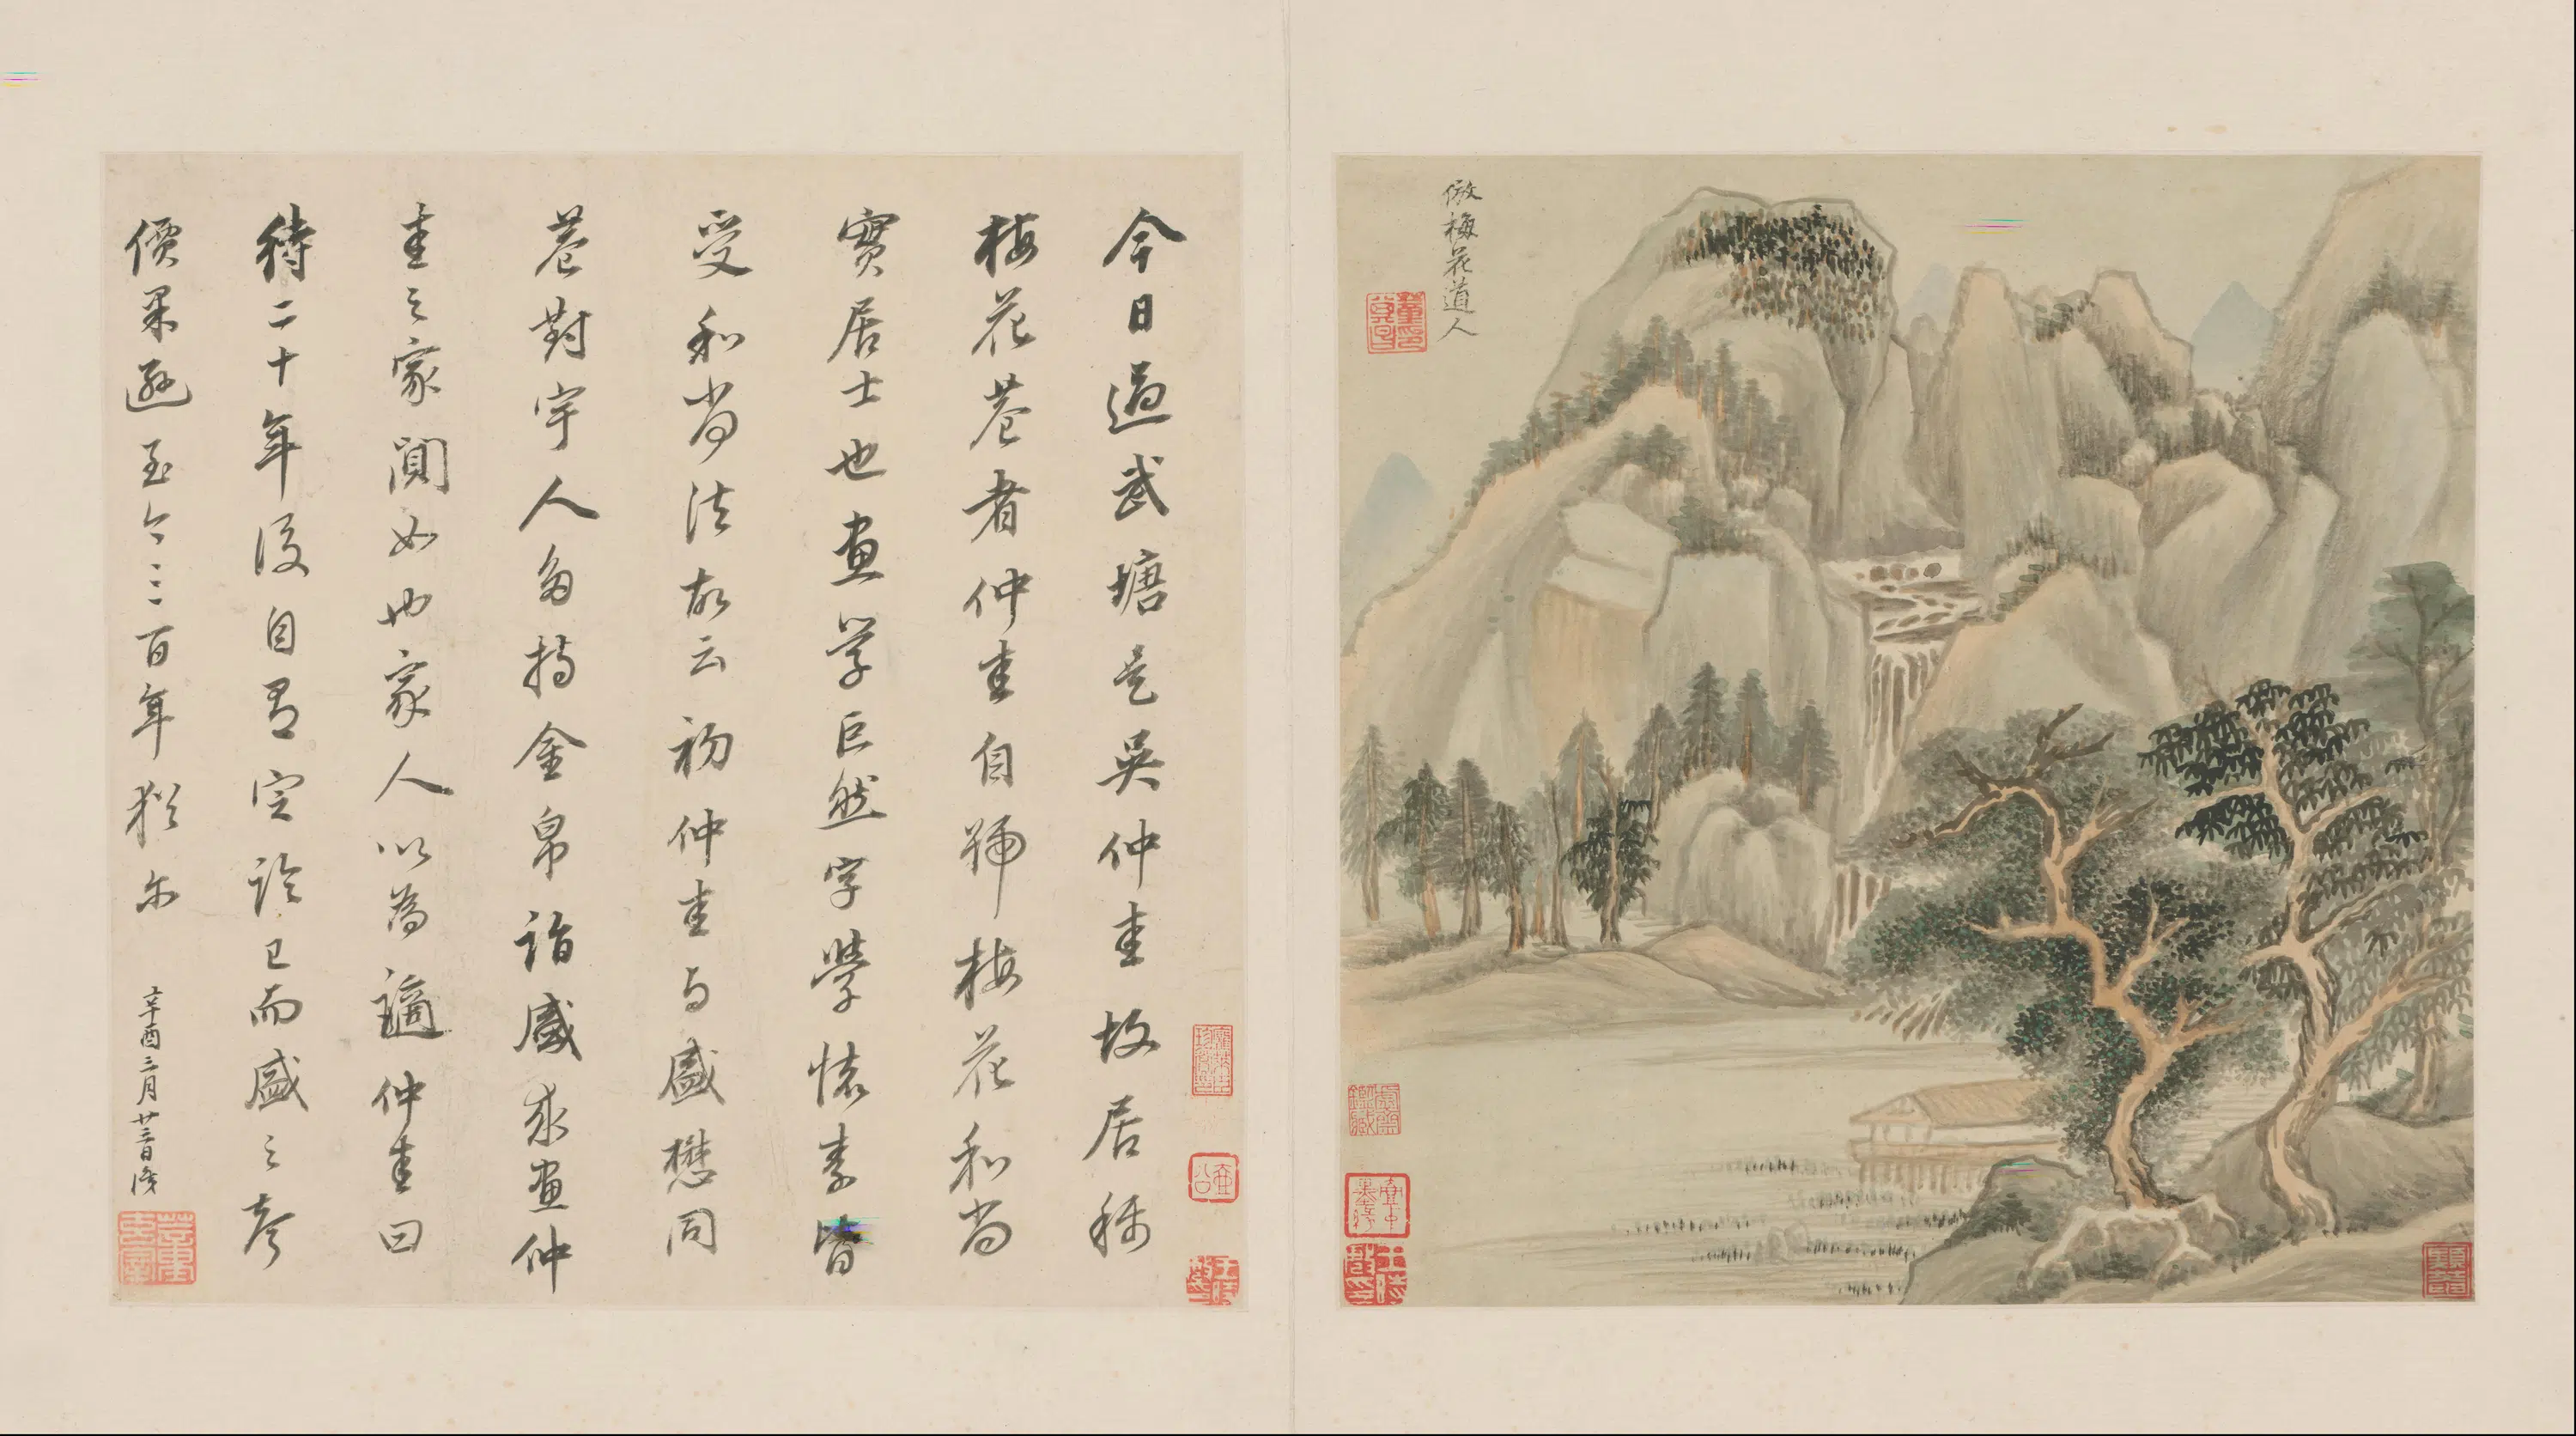 倣梅花道人
今日過武塘是吳仲圭故居稱
梅花菴者仲圭自號梅花和尚
實居士也畫学巨然字學懷素皆
受和尚法故云初仲圭与盛懋同
巷對宇人多持金帛詣盛求畫仲
圭之家闃如也家人以為謫仲圭曰
待二十年後自有定論已而盛之聲
價果遜至今三百年猶尔
辛酉三月廿三日識